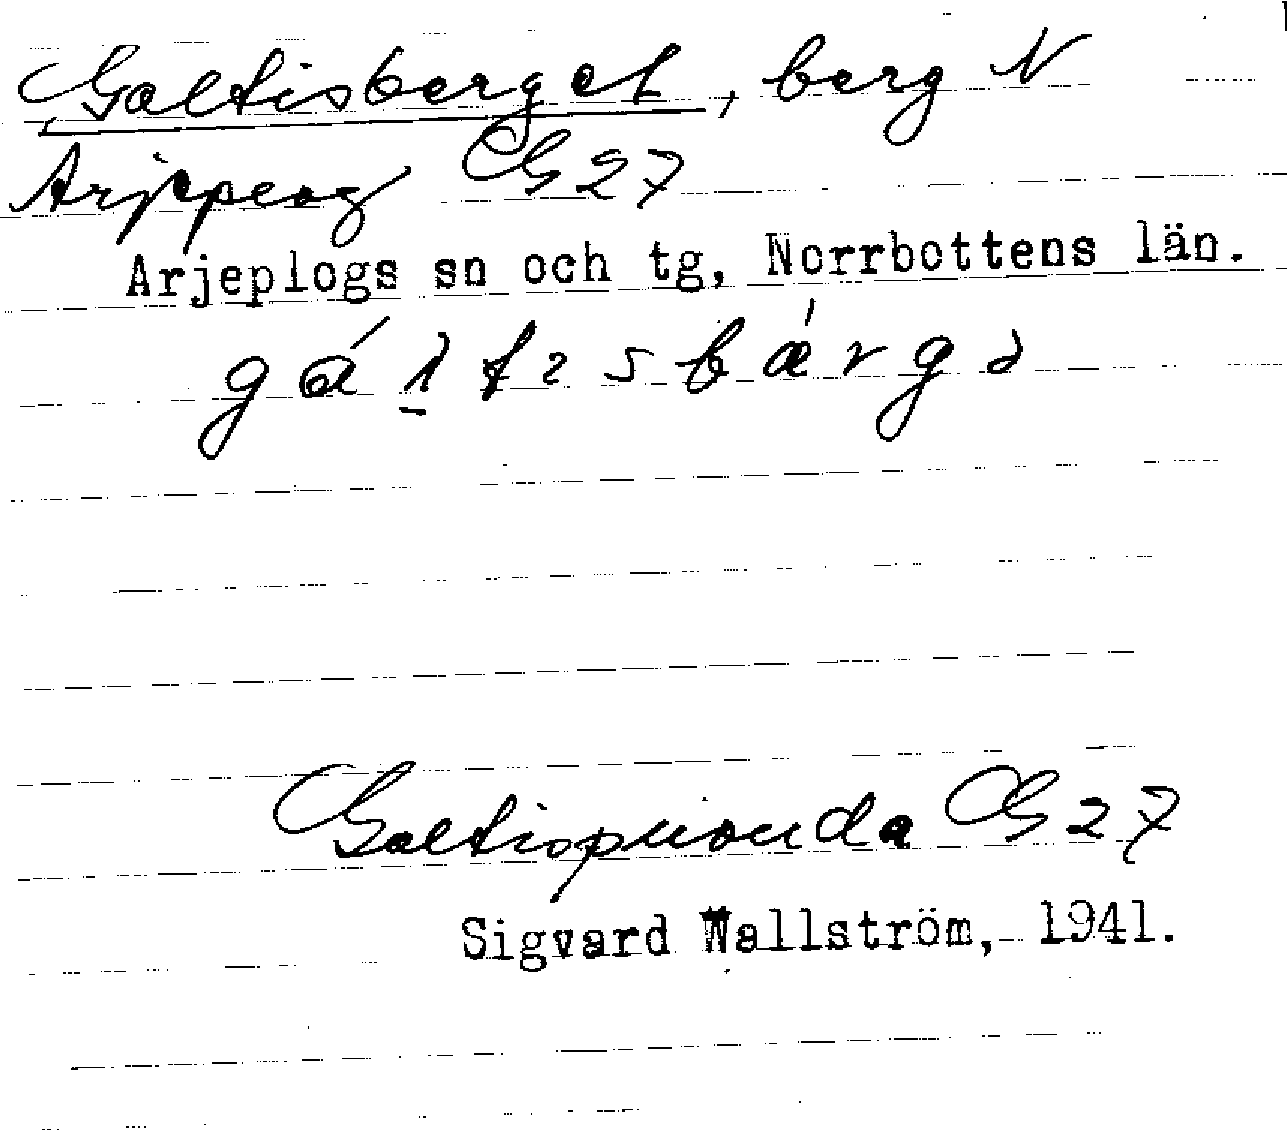 Galtisberget, berg N
Arjeplog G 27
Arjeplogs sn och tg, Norrbottens län.
Galtispuouda G 27
Sigvard Wallström, 1941.